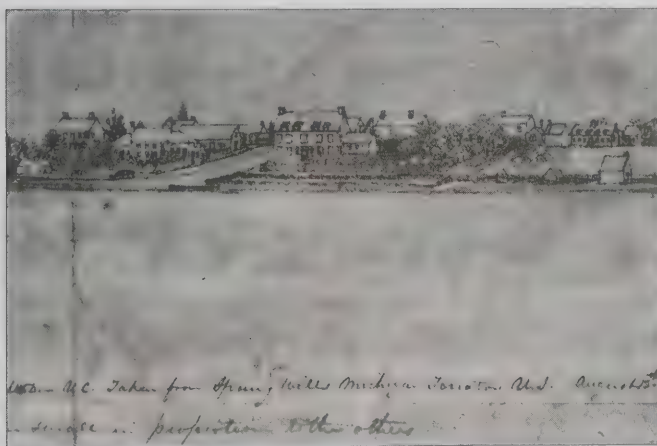 U.C. Taken from Spring Wells Michigan U.S. August
in proportion to the others